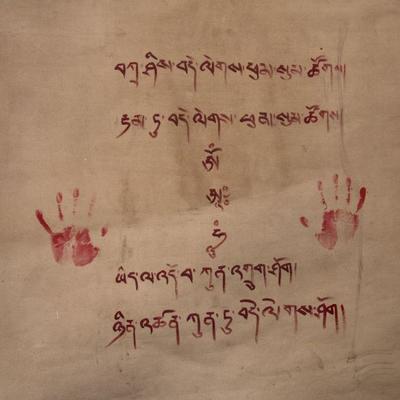 བཀྲ་ཤིས་བདེ་ལེགས་ཕུན་སུམ་ཚོགས།
བདེ་ལེགས་ཕུན་སུམ་ཚོགས།
ཨོཾ
ཨཱཿ
ཧཱུྃ
ཡིད་ལ་འདོད་པ་ཀུན་འགྲུབ་ཤོག།
ཉིན་མཚན་ཀུན་ཏུ་བདེ་ལེགས་ཤོག།